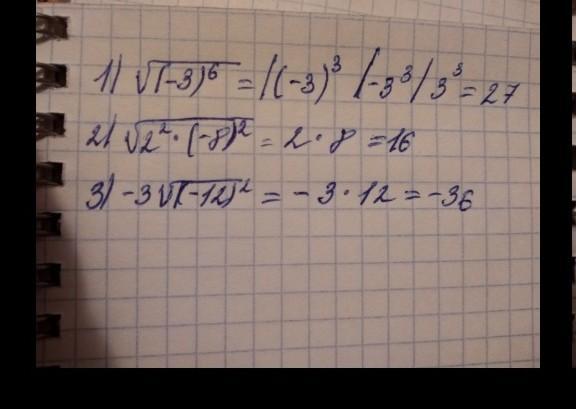 1) √(-3)⁶ = |(-3)³ |-3³| 3³ = 27
2) √2² · (-8)² = 2 · 8 = 16
3) -3√(-12)² = - 3 · 12 = -36